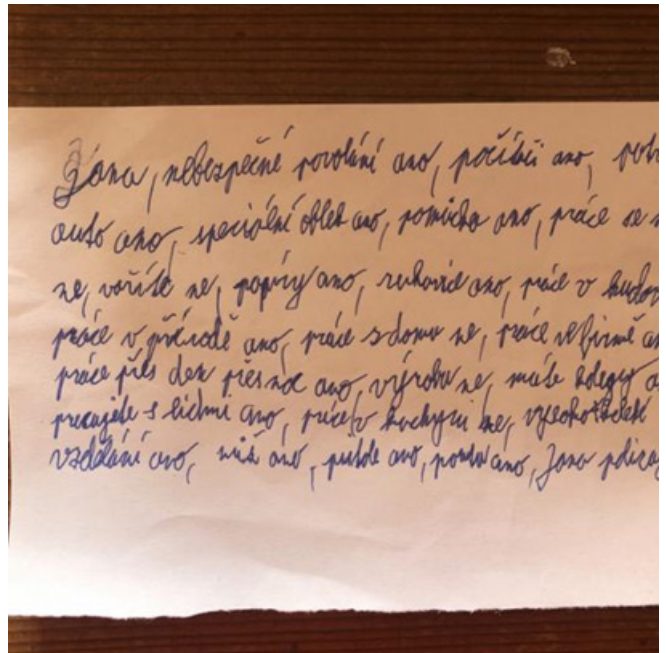 Jana, nebezpečné povolání ano, počítač ano,
auto ano, speciální oblek ano, pomůcka ano, práce se
ne, vaříte ne, papíry ano, rukavice ano, práce v
práce v přírodě ano, práce z domu ne, práce ve firmě
práce přes den přes noc ano, výroba ne, máte kolegy
pracujete s lidmi ano, práce v kuchyni ne,
vzdělání ano, nůž ano, pistole ano, pouta ano, Jana